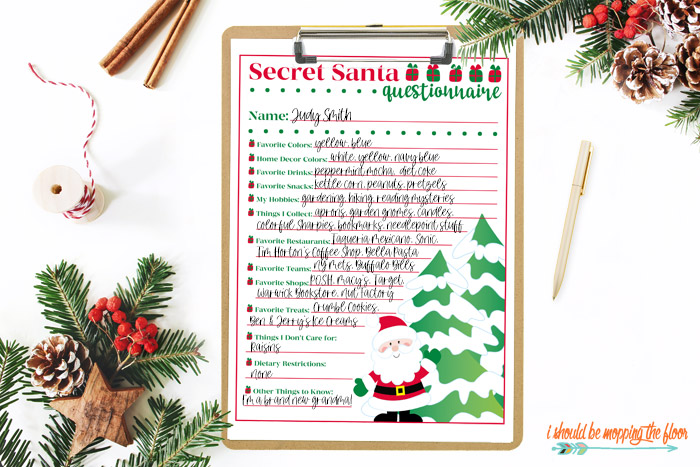 Secret Santa
questionnaire
Name: Judy Smith
Favorite Colors: yellow, blue
Home Decor Colors: white, yellow, navy blue
Favorite Drinks: peppermint mocha, diet coke
Favorite Snacks: kettle corn, peanuts, pretzels
My Hobbies: gardening, hiking, reading mysteries
Things I Collect: aprons, garden gnomes, candles,
colorful Sharpies, bookmarks, needlepoint stuff
Favorite Restaurants: Taqueria Mexicano, Sonic,
Tim Horton's Coffee Shop, Bella Pasta
Favorite Teams: NY Mets, Buffalo Bills
Favorite Shops: POSH, Macy's, Target,
Warwick Bookstore, nut factory
Favorite Treats: Crumble Cookies,
Ben & Jerry's Ice Creams
Things I Don't Care for:
Raisins
Dietary Restrictions:
none
Other Things to Know:
I'm a brand new grandma!
i should be mopping the floor